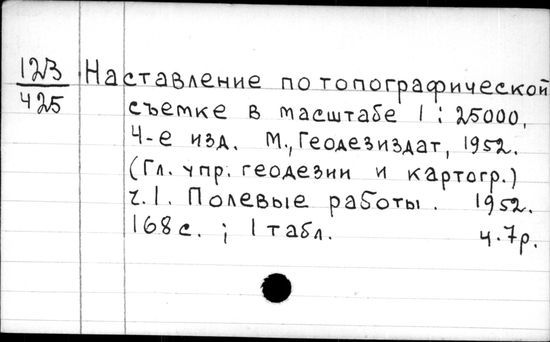 123 Наставление по топографической
425 съемке в масштабе 1:25000,
4-е изд. М., Геодезиздат, 1952.
(Гл. упр. геодезии и картогр.)
ч.1. Полевые работы. 1952.
168с.; 1 табл. ч.7р.